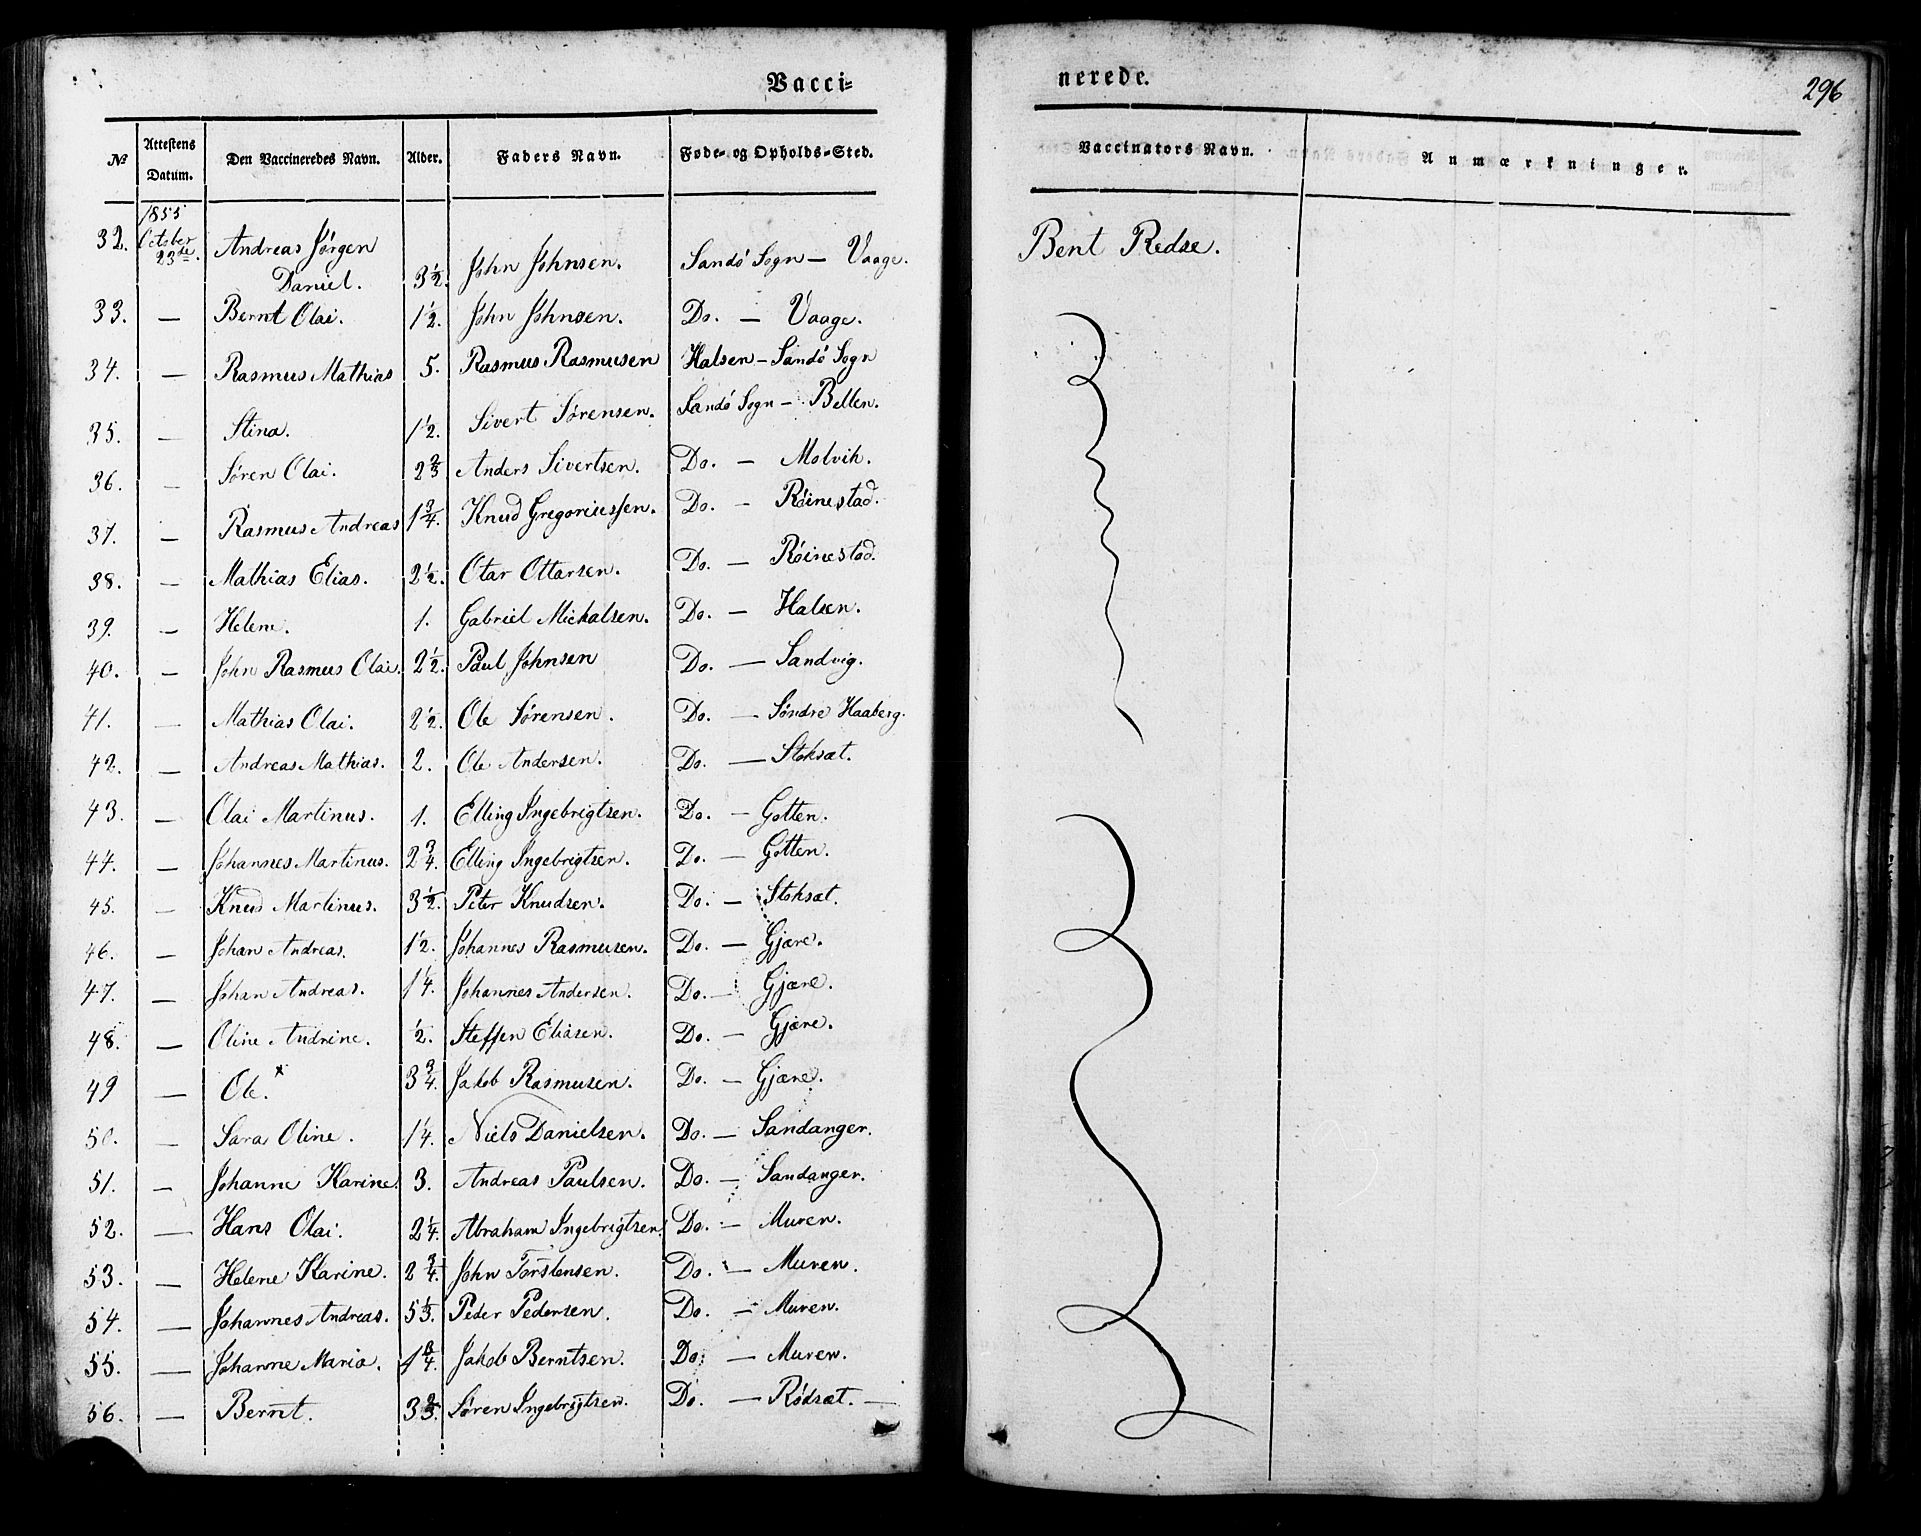 Vacci=
nerede.
296
№ Attestens Datum. Den Vaccineredes Navn. Alder. Faders Navn. Føde- og Opholds-Sted. Vaccinators Navn. Anmærkninger.
1855
32. October 23de. Andreas Jørgen Daniel. 3½. John Johnsen. Sandö Sogn — Vaage. Bent Redse.
33. — Bernt Olai. 1½. John Johnsen. Do. — Vaage.
34. — Rasmus Mathias 5. Rasmus Rasmusen Halsen — Sandö Sogn
35. — Stina. 1½. Sivert Sörensen. Sandö Sogn — Belten.
36. — Søren Olai. 2⅔ Anders Sivertsen. Do. — Molvik.
37. — Rasmus Andreas 1¾. Knud Gregoriussen. Do. — Röinestad.
38. — Mathias Elias. 2½. Otar Ottarsen. Do. — Röinestad.
39. — Helene. 1. Gabriel Mickalsen. Do. — Halsen.
40. — John Rasmus Olai. 2½. Paul Johnsen Do. — Sandvig.
41. — Mathias Olai. 2½. Ole Sörensen. Do. — Söndre Haaberg.
42. — Andreas Mathias. 2. Ole Andersen. Do. — Stoksæt.
43. — Olai Martinus. 1. Elling Ingebrigtsen. Do. — Gotten.
44. — Johannes Martinus. 2¾. Elling Ingebrigtsen. Do. — Gotten.
45. — Knud Martinus. 3½. Peter Knudsen. Do. — Stoksæt.
46. — Johan Andreas. 1½. Johannes Rasmusen. Do. — Gjære.
47. — Johan Andreas. 1¼. Johannes Andersen. Do. — Gjære.
48. — Oline Andrine. ½. Steffen Eliasen. Do. — Gjære.
49 — Ole.x 3¾. Jakob Rasmusen. Do. — Gjære.
50. — Sara Oline. 1¼. Niels Danielsen. Do. — Sandanger.
51. — Johanne Karine. 3. Andreas Paulsen. Do. — Sandanger.
52. — Hans Olai. 2¼. Abraham Ingebrigtsen. Do. — Muren.
53. — Helene Karine. 2¾. John Torstensen. Do. — Muren.
54. — Johannes Andreas. 5⅓. Peder Pedersen. Do. — Muren.
55. — Johanne Maria. 1¾. Jakob Berntsen. Do. — Muren.
56. — Bernt. 3⅔. Søren Ingebrigtsen. Do. — Rödsæt. —